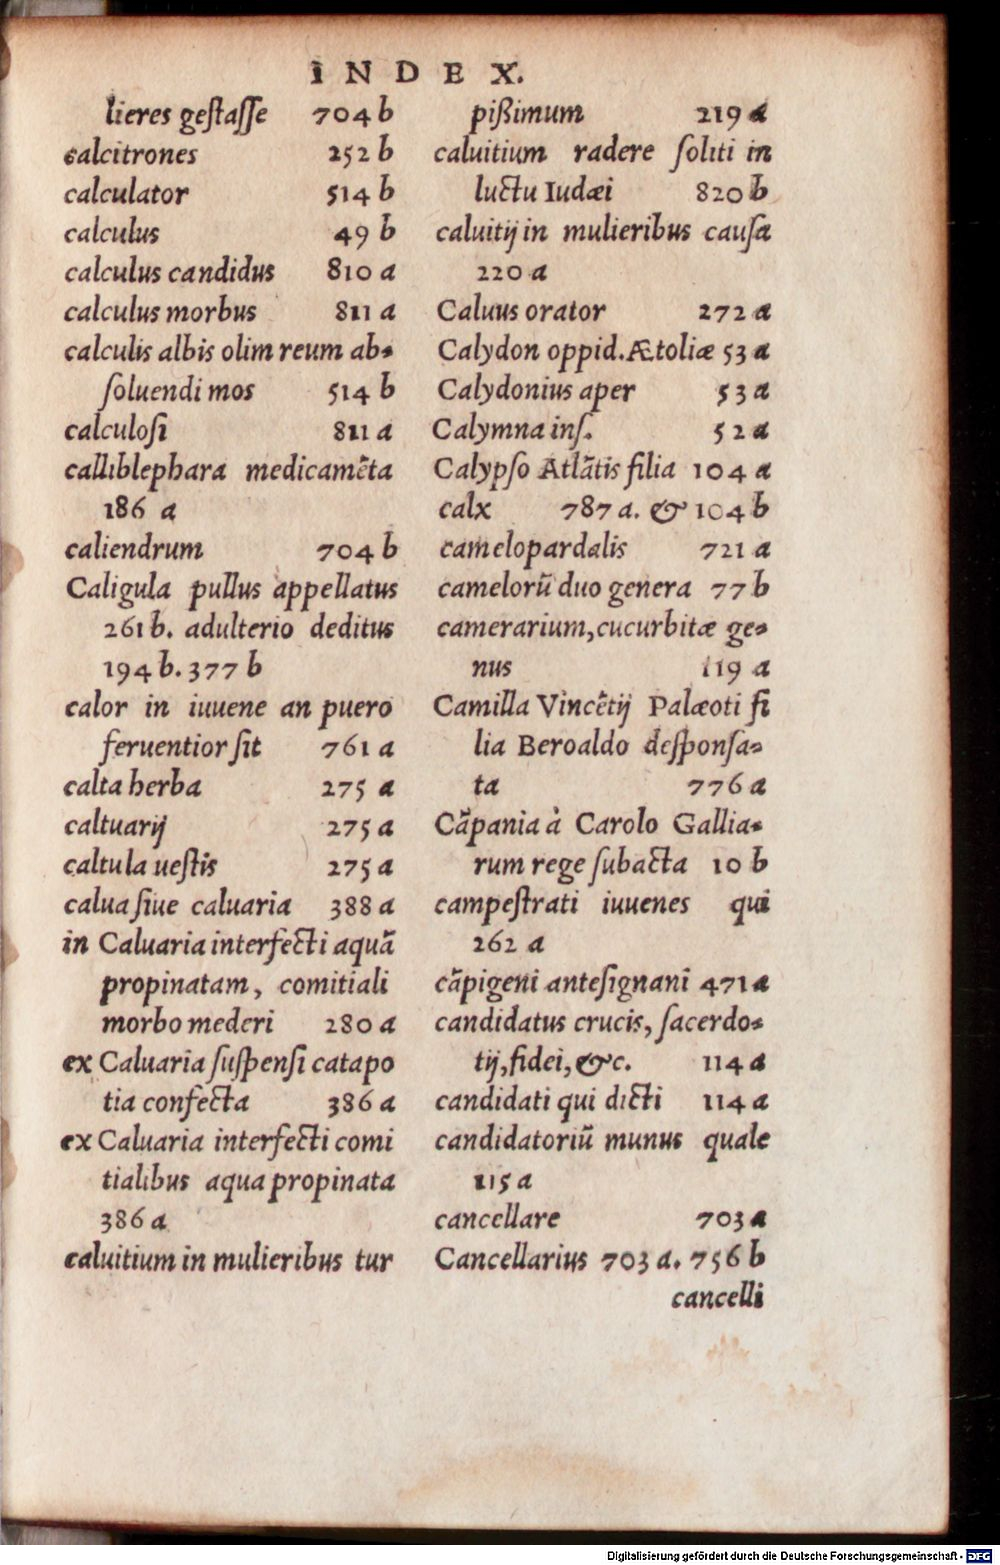 INDEX.
lieres gestasse 704 b
calcitrones 252 b
calculator 514 b
calculus 49 b
calculus candidus 810 a
calculus morbus 811 a
calculis albis olim reum ab-
soluendi mos 514 b
calculosi 811 a
calliblephara medicamēta
186 a
caliendrum 704 b
Caligula pullus appellatus
261 b. adulterio deditus
194 b. 377 b
calor in iuuene an puero
feruentior sit 761 a
calta herba 275 a
caltuarij 275 a
caltula uestis 275 a
calua siue caluaria 388 a
in Caluaria interfecti aquā
propinatam, comitiali
morbo mederi 280 a
ex Caluaria suspensi catapo
tia confecta 386 a
ex Caluaria interfecti comi
tialibus aqua propinata
386 a
caluitium in mulieribus tur
pißimum 219 a
caluitium radere soliti in
luctu Iudæi 820 b
caluitij in mulieribus causa
220 a
Caluus orator 272 a
Calydon oppid. Ætoliæ 53 a
Calydonius aper 53 a
Calymna ins. 52 a
Calypso Atlātis filia 104 a
calx 787 a. & 104 b
camelopardalis 721 a
camelorū duo genera 77 b
camerarium, cucurbitæ ge-
nus 119 a
Camilla Vincētij Palæoti fi
lia Beroaldo desponsa-
ta 776 a
Cāpania à Carolo Gallia-
rum rege subacta 10 b
campestrati iuuenes qui
262 a
cāpigeni antesignani 471 a
candidatus crucis, sacerdo-
tij, fidei, &c. 114 a
candidati qui dicti 114 a
candidatoriū munus quale
115 a
cancellare 703 a
Cancellarius 703 a. 756 b
cancelli
Digitalisierung gefördert durch die Deutsche Forschungsgemeinschaft - DFG